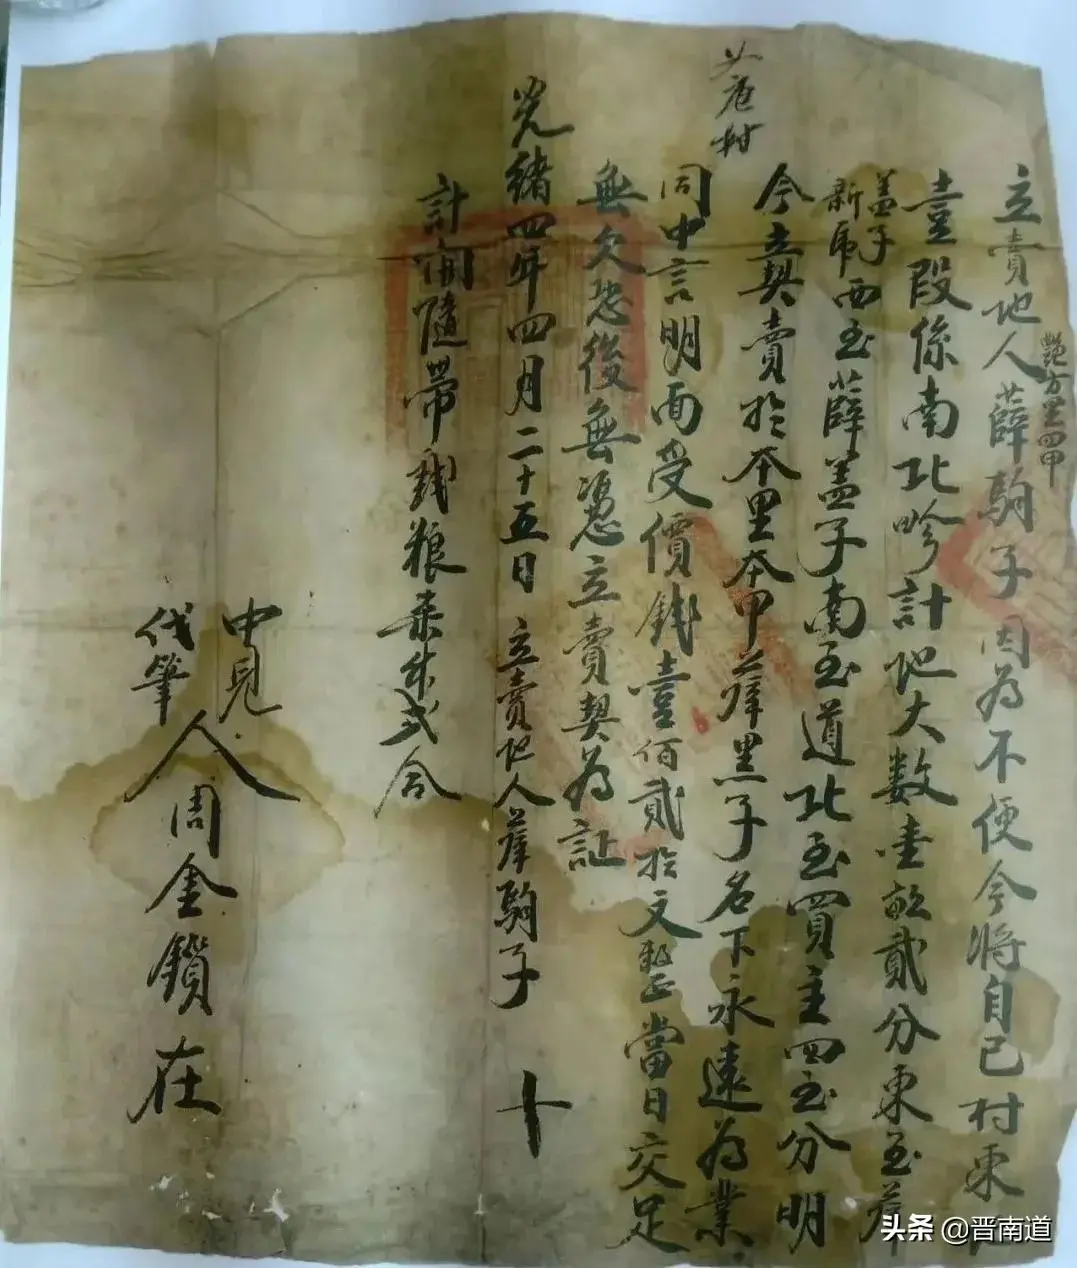 艷方里四甲
立賣地人薛駒子因為不便今將自己村東地
壹段係南北畛計地大数壹畝貳分東至薛
盖子
新房西至薛盖子南至道北至買主四至分明
今立契賣於本里本甲薛黑子名下永遠為業
村
同中言明面受價錢壹佰貳拾文整當日交足
無欠恐後無憑立賣契為証
光緒四年四月二十五日 立賣地人薛駒子 十
計開隨帶我粮 式合
中見
代筆
人周金鎖在
头条 @晋南道